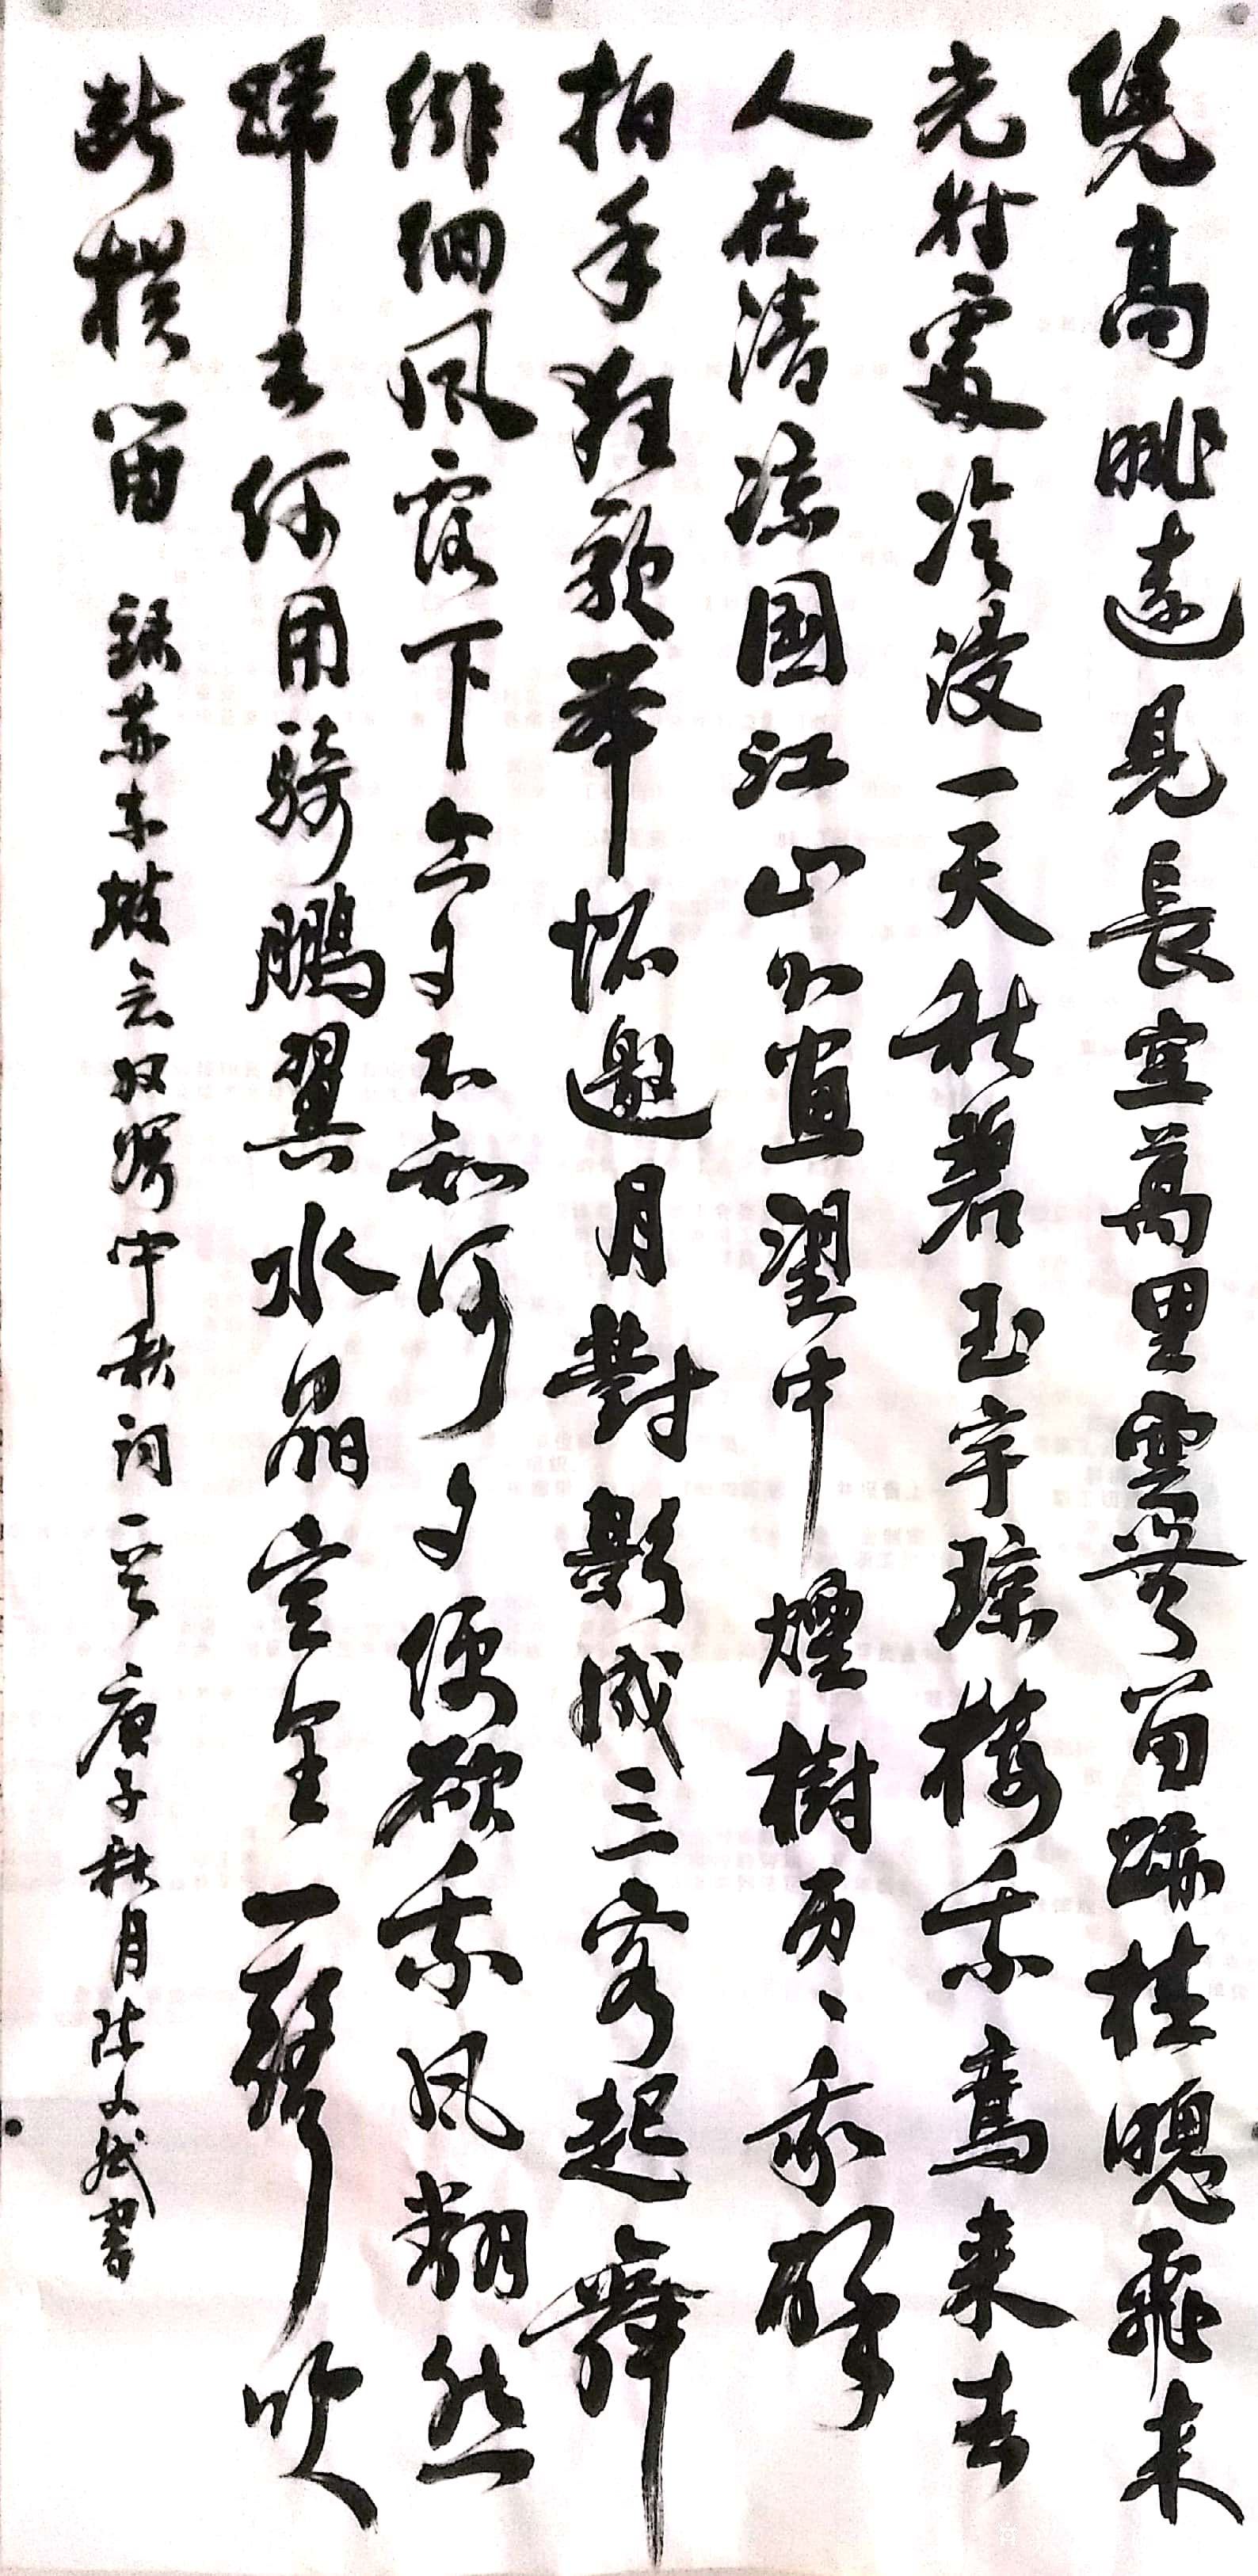 凭高眺遠見長空萬里雲無留跡桂魄飛来
光射處冷浸一天秋碧玉宇瓊樓乘鸞来去
人在清涼國江山如畫望中煙樹歷歷我醉
拍手狂歌舉杯邀月對影成三客起舞
徘徊風露下今夕不知何夕便欲乘風翻然
歸去何用騎鵬翼水晶宮裏一聲吹
斷横笛
錄苏东坡念奴嬌中秋詞一首庚子秋月陈文斌書